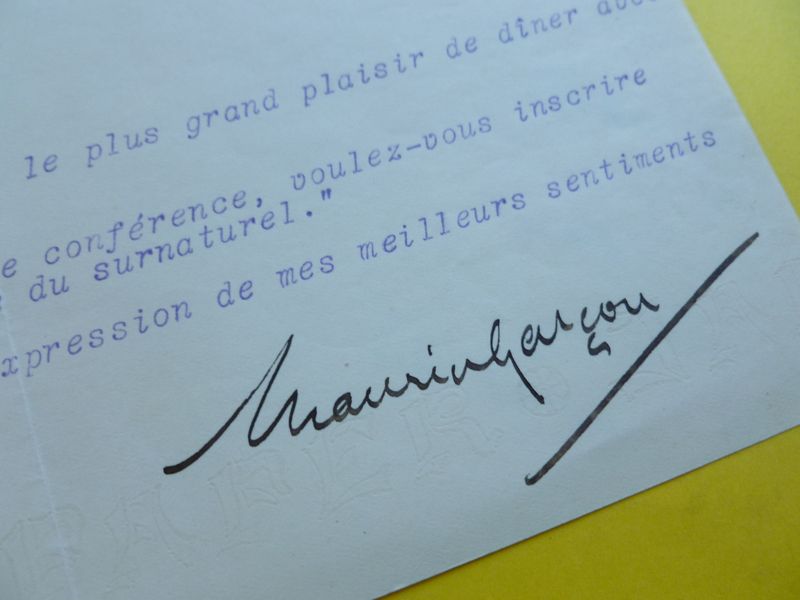 le plus grand plaisir de dîner avec
e conférence, voulez-vous inscrire
du surnaturel."
xpression de mes meilleurs sentiments
Maurice Garçon